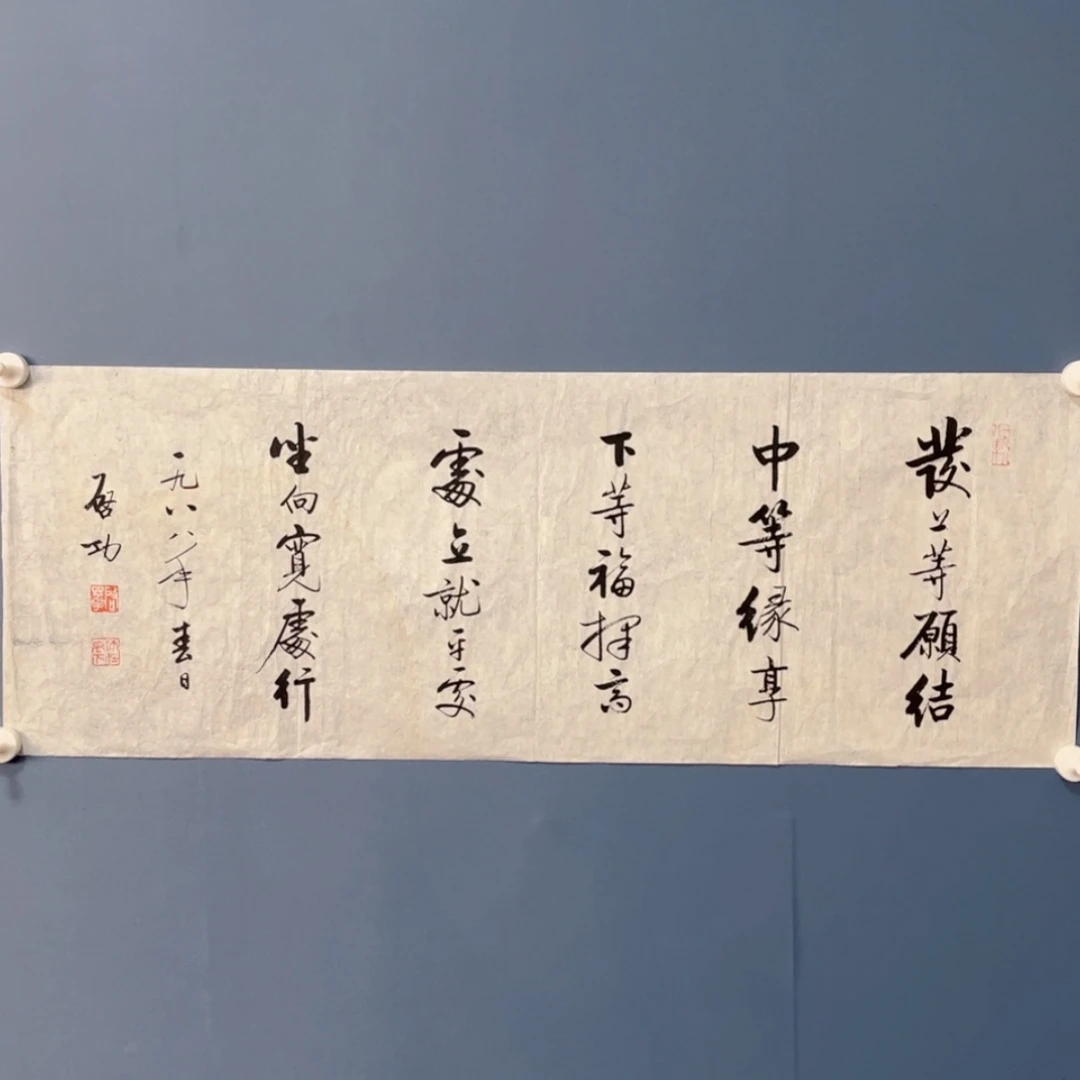 發上等願結
中等緣享
下等福擇高
處立就平處
坐向寬處行
一九八八年春日
啓功